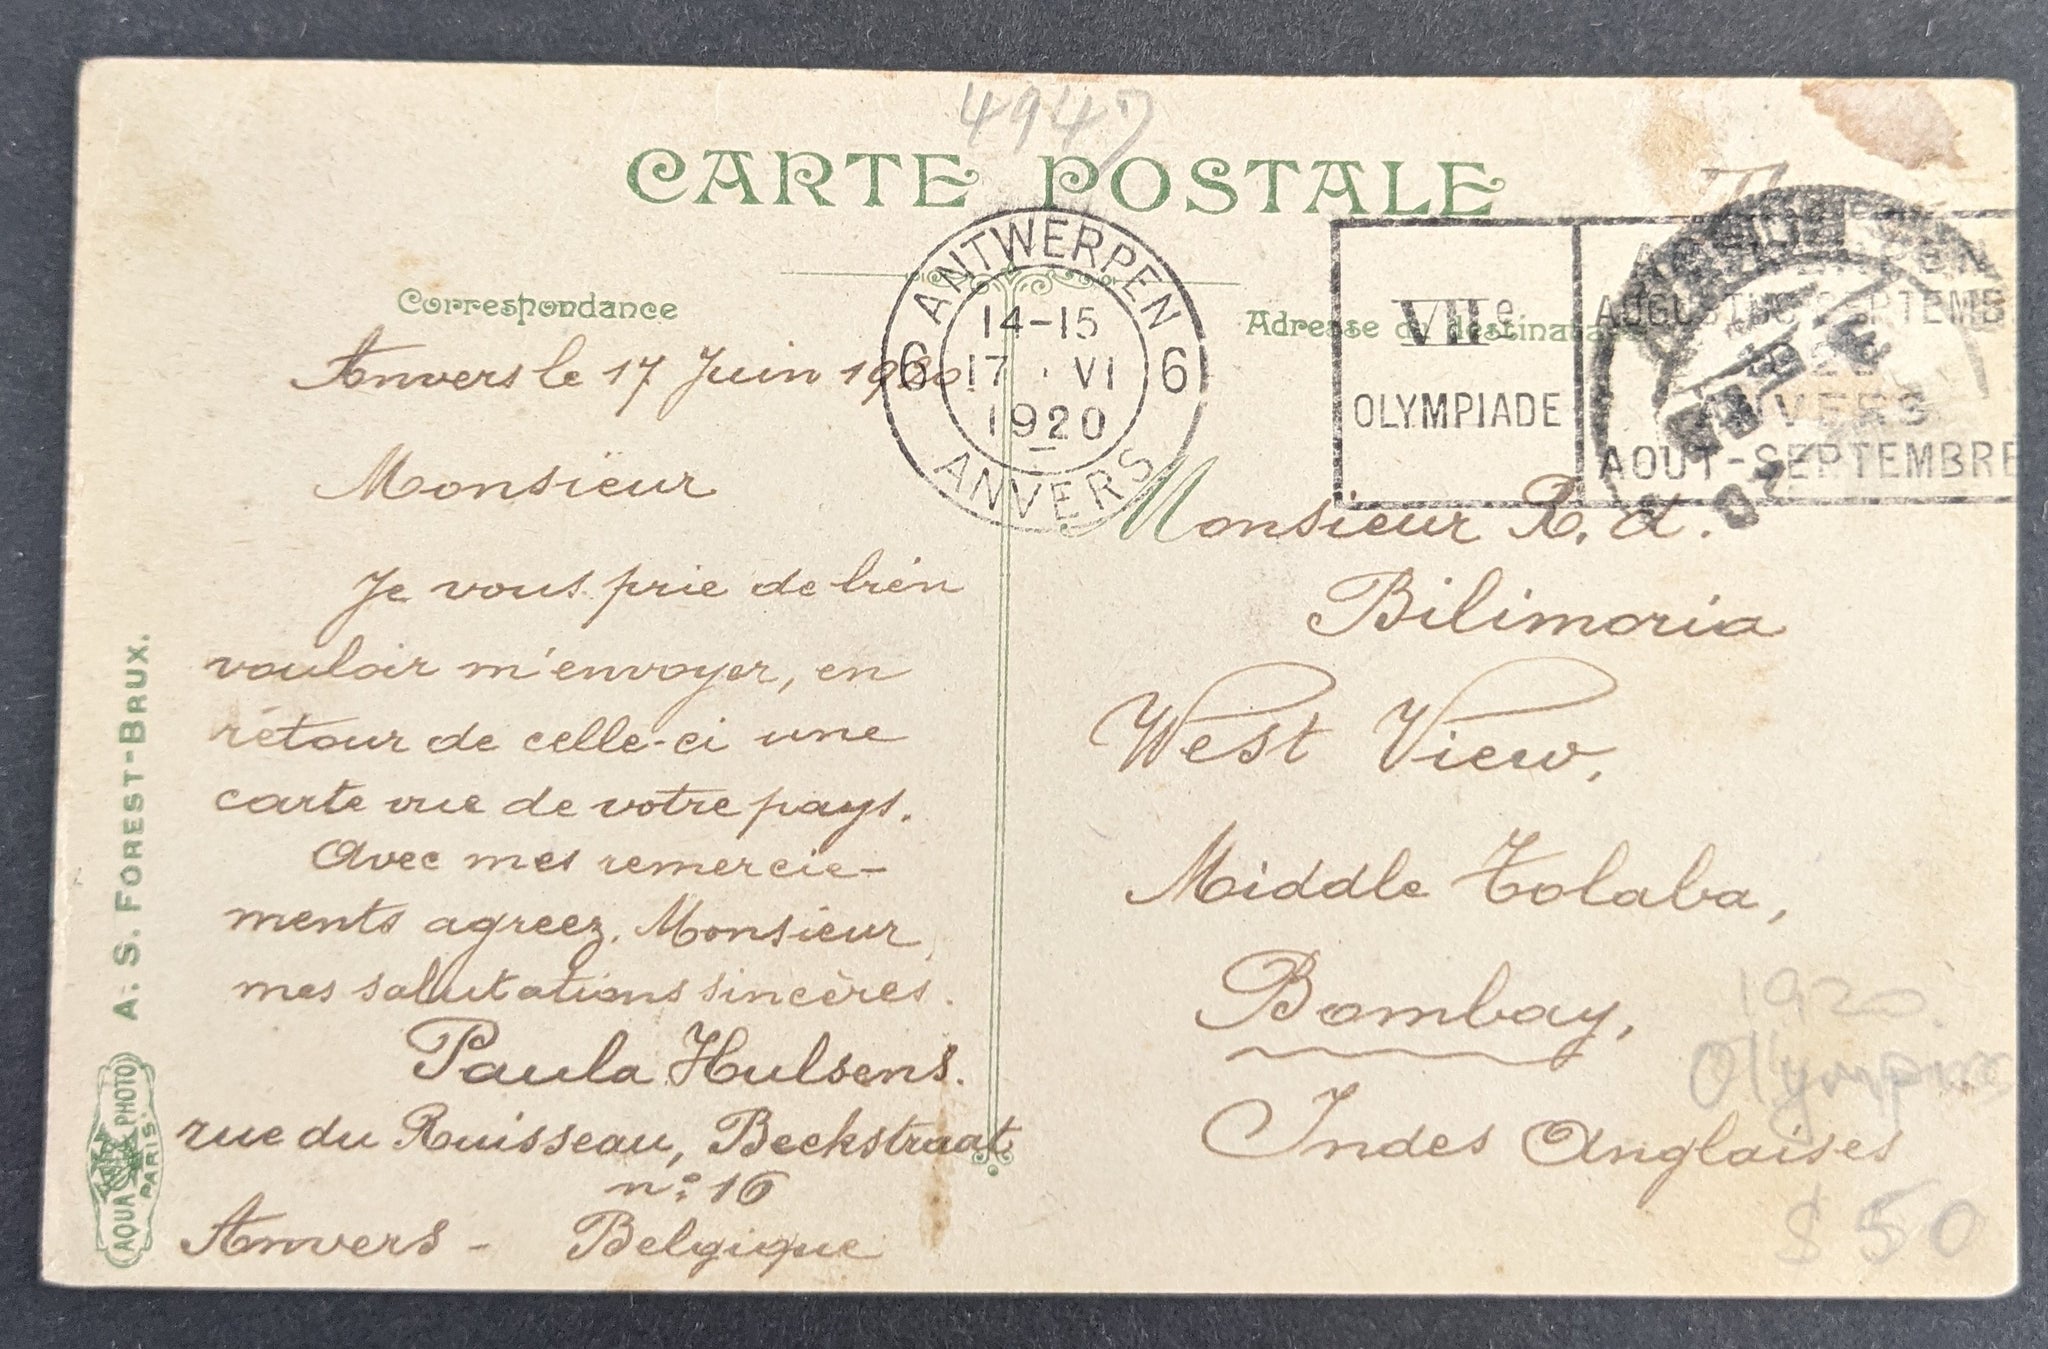 4947
CARTE POSTALE
Correspondance
Adresse du destinata
ANTWERPEN
14-15
6 17 · VI 6
1920
ANVERS
VIIe
OLYMPIADE
AUGUSTUS-SEPTEMB
1920
ANVERS
AOUT-SEPTEMBRE
Anvers le 17 Juin 1920
Monsieur
Je vous prie de bien
vouloir m'envoyer, en
retour de celle-ci une
carte vue de votre pays.
Avec mes remercie-
ments agreez, Monsieur
mes salutations sincères.
Paula Hulsens.
rue du Ruisseau, Beekstraat
n° 16
Anvers - Belgique
Monsieur R. d.
Bilimoria
West View,
Middle Colaba,
Bombay,
Indes Anglaises
1920
Olympics
$50
A. S. FOREST-BRUX.
AQUA PHOTO
PARIS